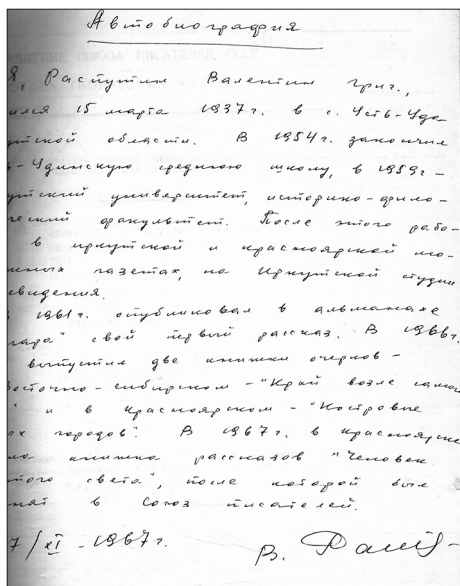 Автобиография
Я, Распутин Валентин Григ.,
ился 15 марта 1937 г. в с. Усть-Уда
утской области. В 1954 г. закончил
-Удинскую среднюю школу, в 1959 г. -
утский университет, историко-фило-
ческий факультет. После этого рабо-
в иркутской и красноярской мо-
жных газетах, на Иркутской студии
евидения.
1961 г. опубликовал в альманахе
гара" свой первый рассказ. В 1966 г.
выпустил две книжки очерков -
Восточно-сибирском - "Край возле самого
" и в Красноярском - "Костровые
ых городов". В 1967 г. в Красноярске
ла книжка рассказов "Человек
того света", после которой был
нят в Союз писателей.
7/XI - 1967 г.
В. Расп